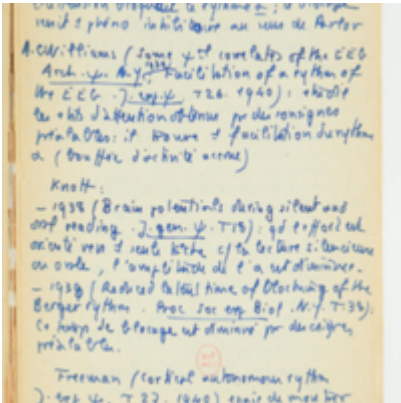 unité phéno inhibitoire au sens de Pavlov
A.C. Williams (Some ψ correlates of the EEG
Arch. ψ. N.Y. Facilitation of α rythm of
the EEG. J. exp. ψ. T26. 1940) : étudie
les états d'attention obtenus par des consignes
préalables : il trouve facilitation du rythme
α (bouffée d'activité accrue)
Knott :
– 1938 (Brain potentials during silent and
oral reading. J. gen. ψ. T18) : qd effort est
orienté vers 1 seule tâche c/ la lecture silencieuse
ou orale, l'amplitude de l'α est diminuée.
– 1939 (Reduced latent time of blocking of the
Berger rythm. Proc soc exp Biol. N.Y. T.38) :
Ce temps de blocage est diminué par des consignes
préalables.
Freeman (cortical autonomous rythm
J. exp ψ. T 27. 1940) essaie de montrer